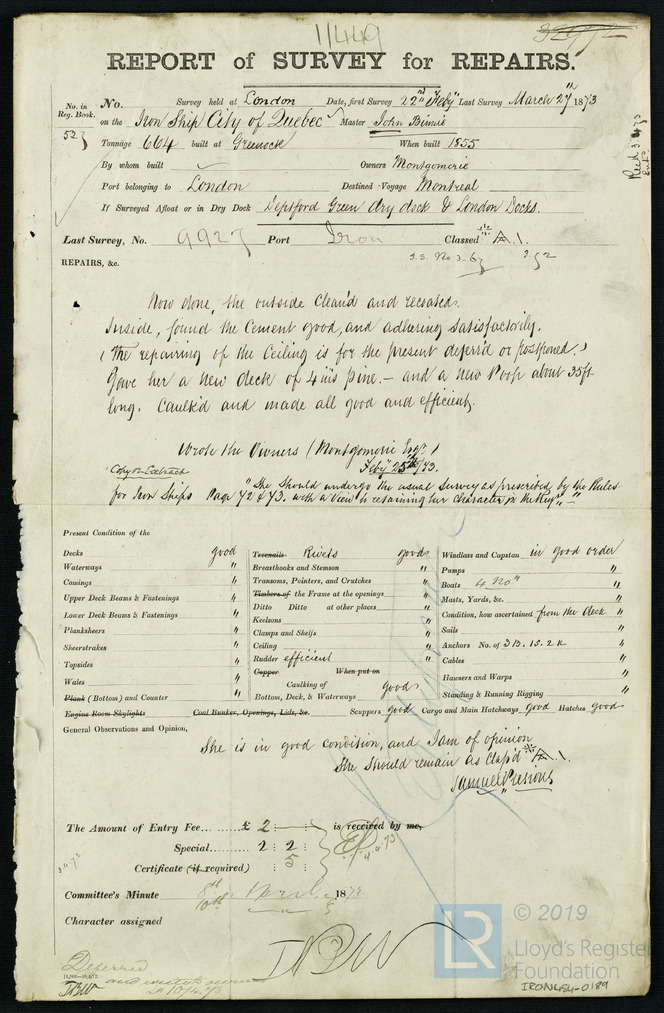 1/449
REPORT of SURVEY for REPAIRS.
No. in Reg. Book.
527
No. Survey held at London Date, first Survey 22nd Feby Last Survey March 27th 1873
on the Iron Ship City of Quebec Master John Binnie
Tonnage 664 built at Greenock When built 1855
By whom built Owners Montgomerie
Port belonging to London Destined Voyage Montreal
If Surveyed Afloat or in Dry Dock Deptford Green dry dock & London Docks.
Last Survey, No. 9927 Port Iron Classed A.1.
REPAIRS, &c.
Now done, the outside Clean'd and recoated.
Inside, found the Cement good, and adhering satisfactorily.
(The repairing of the Ceiling is for the present deferr'd or postponed.)
Gave her a new deck of 4 ins pine. — and a new Poop about 35ft
long. Caulk'd and made all good and efficient.
Wrote the Owners (Montgomerie Esqr.)
Copy or Extract Feby 25th/73.
"She should undergo the usual survey as prescribed by the Rules
for Iron Ships Page 72 & 73. with a view to retaining her character in the Regr."
Present Condition of the
Decks good
Waterways "
Comings "
Upper Deck Beams & Fastenings "
Lower Deck Beams & Fastenings "
Planksheers "
Sheerstrakes "
Topsides "
Wales "
Plank (Bottom) and Counter "
Engine Room Skylights Coal Bunker, Openings, Lids, &c. Scuppers good Cargo and Main Hatchways good Hatches good
Treenails Rivets good
Breasthooks and Stemson "
Transoms, Pointers, and Crutches "
Timbers of the Frame at the openings "
Ditto Ditto at other places "
Keelsons "
Clamps and Shelfs "
Ceiling "
Rudder efficient "
Copper When put on
Caulking of
Bottom, Deck, & Waterways good
Windlass and Capstan in good order
Pumps "
Boats 4 No. "
Masts, Yards, &c. "
Condition, how ascertained from the deck "
Sails "
Anchors No. of 3 B. 1 S. 2 K "
Cables "
Hawsers and Warps "
Standing & Running Rigging "
General Observations and Opinion,
She is in good condition, and I am of opinion
She should remain as Class'd A.1.
The Amount of Entry Fee...... £ 2 : is received by me,
Special...... 2 : 2 4.4.73
Certificate (if required) : 5
Committee's Minute 8th April 1873
10th " "
Character assigned
Deferred
© 2019
LR
Lloyd's Register
Foundation
IRON484-0189